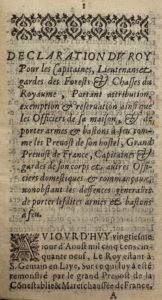 DECLARATION DV ROY
Pour les Capitaines, Lieutenans &
gardes des Forests & Chasses du
Royaume, Portant attribution,
exemption & reseruation ainsi que
les Officiers de sa maison, & de
porter armes & bastons à feu com-
me les Preuost de son hostel, Grand
Preuost de France, Capitaines &
gardes de son corps & autres Offi-
ciers domestiques & commençaux,
nonobstant les deffences generales
de porter lesdites armes & bastons
à feu.
AVIOVRD'HVY vingtiesme
iour d'Aoust mil cinq cens cin-
quante neuf, Le Roy estant à
S. Germain en Laye, sur ce qui luy a esté
remonstré par le grand Preuost de la
Conestablie & Mareschaussée de France,
A